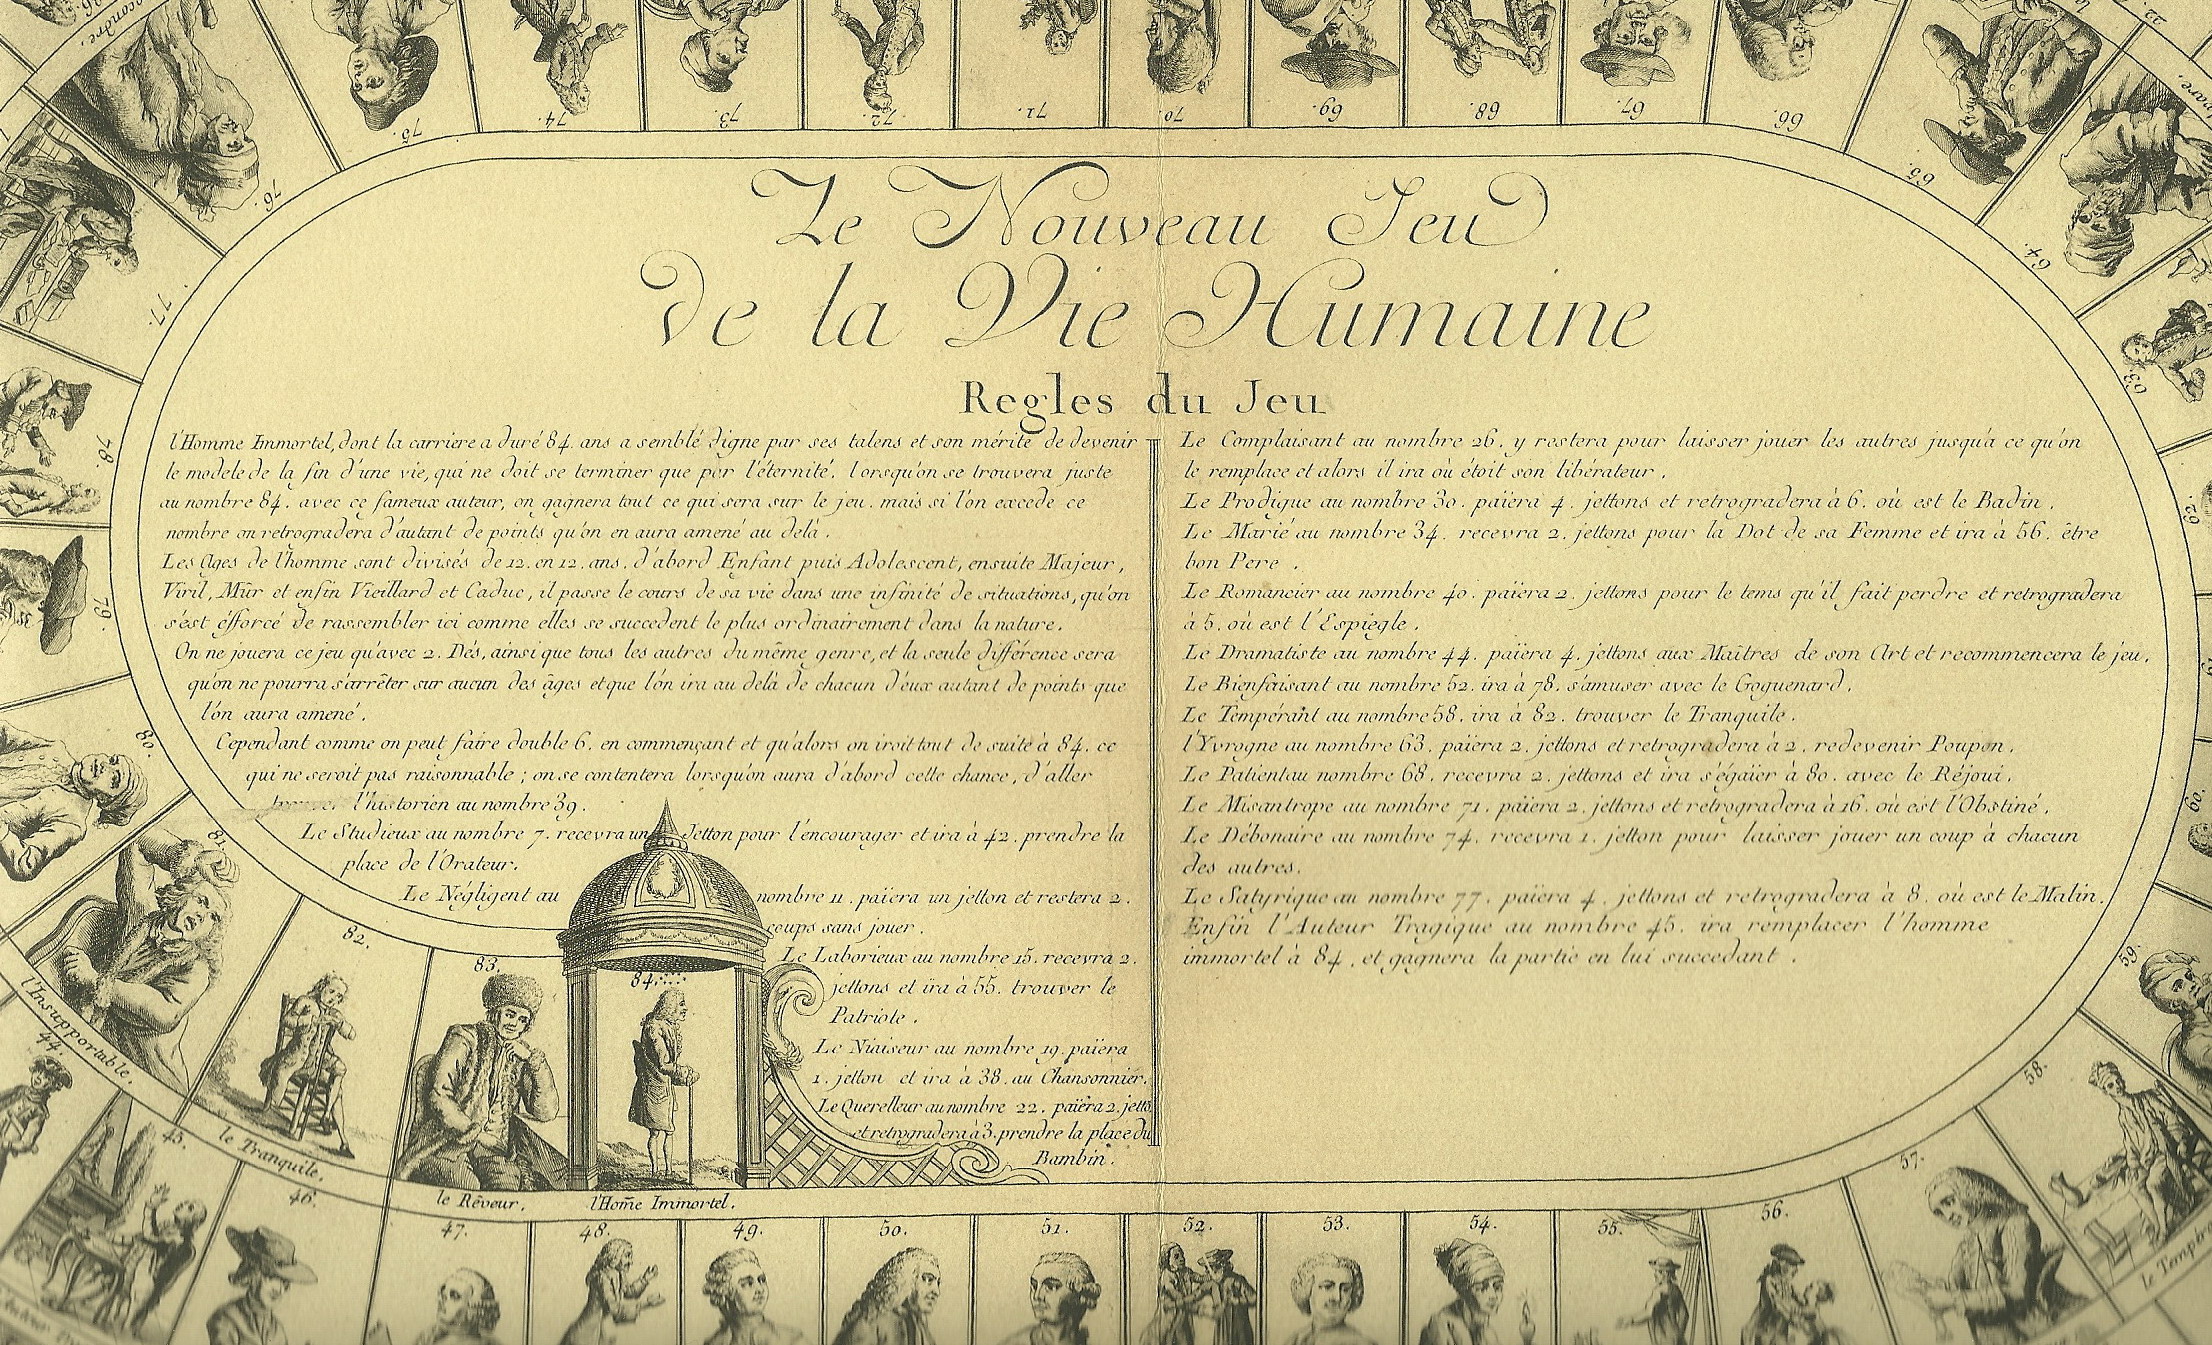 75.
74.
73.
72.
71.
70.
69.
68.
67.
66.
65.
64.
63.
62.
60.
59.
58.
57.
76.
77.
78.
79.
80.
81.
82.
83.
84.
Le Nouveau Jeu
de la Vie Humaine
Regles du Jeu
l'Homme Immortel, dont la carriere a duré 84. ans a semblé digne par ses talens et son mérite de devenir
le modele de la fin d'une vie, qui ne doit se terminer que par l'éternité. lorsqu'on se trouvera juste
au nombre 84. avec ce fameux auteur, on gagnera tout ce qui sera sur le jeu. mais si l'on excede ce
nombre on retrogradera d'autant de points qu'on en aura amené au delà.
Les Ages de l'homme sont divisés de 12. en 12. ans. d'abord Enfant puis Adolescent, ensuite Majeur,
Viril, Mûr et enfin Vieillard et Caduc, il passe le cours de sa vie dans une infinité de situations, qu'on
s'est éfforcé de rassembler ici comme elles se succedent le plus ordinairement dans la nature.
On ne jouera ce jeu qu'avec 2. Dés, ainsi que tous les autres du même genre, et la seule différence sera
qu'on ne pourra s'arrêter sur aucun des âges et que l'ón ira au delà de chacun d'eux autant de points que
l'ón aura amené.
Cependant comme on peut faire double 6. en commençant et qu'alors on iroit tout de suite à 84. ce
qui ne seroit pas raisonnable ; on se contentera lorsqu'on aura d'abord cette chance, d'aller
l'historien au nombre 39.
Le Studieux au nombre 7. recevra un Jetton pour l'encourager et ira à 42. prendre la
place de l'Orateur.
Le Négligent au nombre 11. païera un jetton et restera 2.
coups sans jouer.
Le Laborieux au nombre 15. recevra 2.
jettons et ira à 55. trouver le
Patriote.
Le Niaiseur au nombre 19. païera
1. jetton et ira à 38. au Chansonnier.
Le Querelleur au nombre 22. païera 2. jetts
et retrogradera à 3. prendre la place du
Bambin.
Le Complaisant au nombre 26. y restera pour laisser jouer les autres jusqu'à ce qu'on
le remplace et alors il ira où étoit son libérateur.
Le Prodigue au nombre 30. païera 4. jettons et retrogradera à 6. où est le Badin.
Le Marié au nombre 34. recevra 2. jettons pour la Dot de sa Femme et ira à 56. être
bon Pere.
Le Romancier au nombre 40. païera 2. jettons pour le tems qu'il fait perdre et retrogradera
à 5. où est l'Espiegle.
Le Dramatiste au nombre 44. païera 4. jettons aux Maîtres de son Art et recommencera le jeu.
Le Bienfaisant au nombre 52. ira à 78. s'amuser avec le Goguenard.
Le Tempérant au nombre 58. ira à 82. trouver le Tranquile.
l'Yvrogne au nombre 63. païera 2. jettons et retrogradera à 2. redevenir Poupon.
Le Patient au nombre 68. recevra 2. jettons et ira s'égaïer à 80. avec le Réjoui.
Le Misantrope au nombre 71. païera 2. jettons et retrogradera à 16. où est l'Obstiné.
Le Débonaire au nombre 74. recevra 1. jetton pour laisser jouer un coup à chacun
des autres.
Le Satyrique au nombre 77. païera 4. jettons et retrogradera à 8. où est le Malin.
Enfin l'Auteur Tragique au nombre 45. ira remplacer l'homme
immortel à 84. et gagnera la partie en lui succedant.
l'Insupportable.
le Tranquile.
le Rêveur.
l'Hom̃e Immortel.
44.
45.
46.
47.
48.
49.
50.
51.
52.
53.
54.
55.
56.